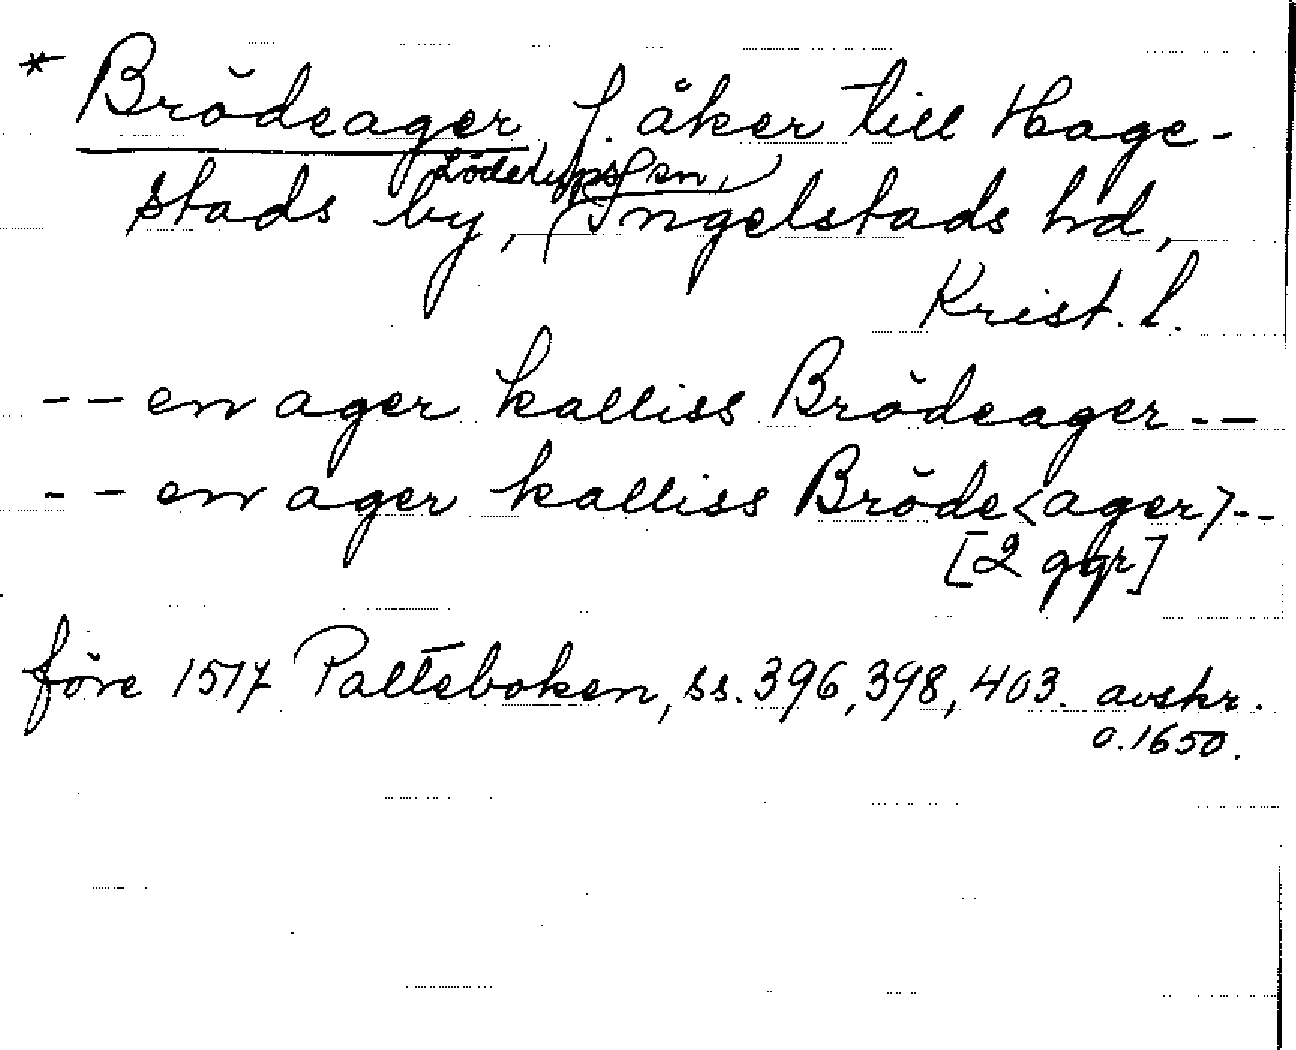 * Brödeager, f. åker till Hage-
stads by, Löderups sn, Ingelstads hd,
Krist. l.
-- en ager kalliss Brödeager --
-- en ager kalliss Bröde<ager> --
[2 ggr]
före 1517 Palteboken, ss. 396, 398, 403. avskr.
o. 1650.